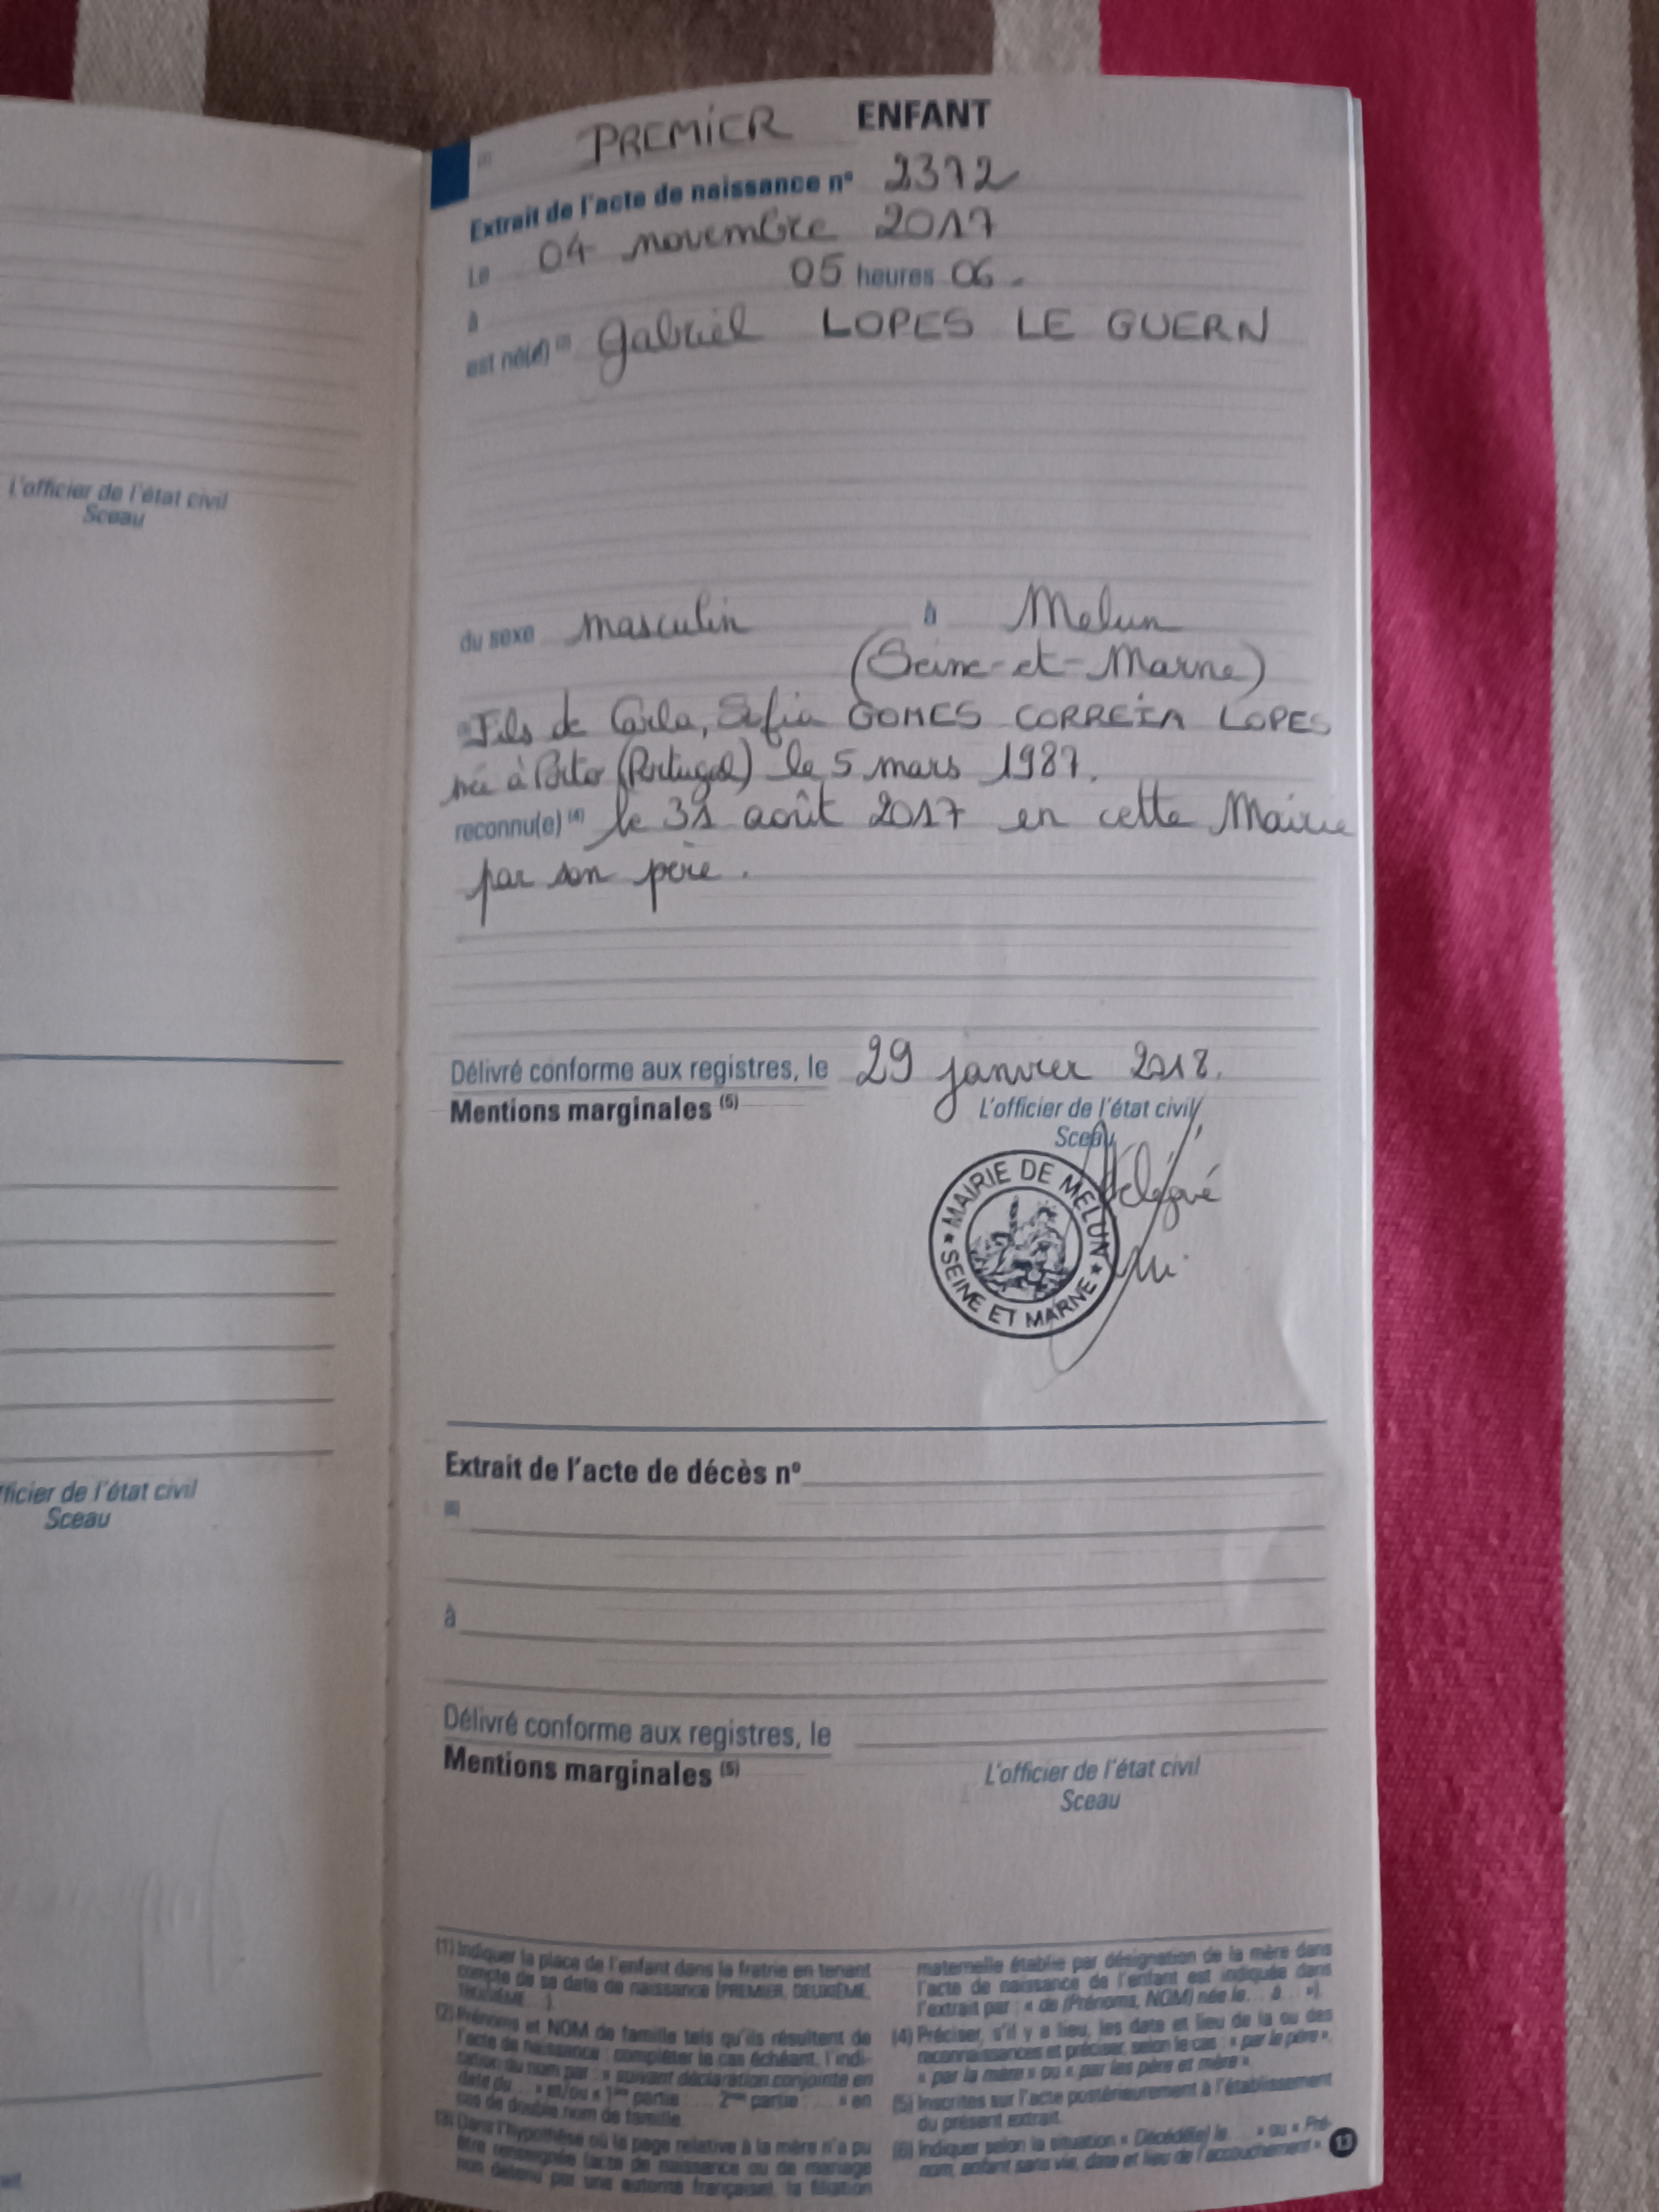 L'officier de l'état civil
Sceau
ficier de l'état civil
Sceau
PREMIER ENFANT
Extrait de l'acte de naissance nº 2372
Le 04 novembre 2017
à 05 heures 06.
est né(e) (2) Gabriel LOPES LE GUERN
du sexe masculin à Melun
(Seine-et-Marne)
Fils de Carla, Sofia GOMES CORREIA LOPES
née à Porto (Portugal) le 5 mars 1987.
reconnu(e) (4) le 31 août 2017 en cette Mairie
par son père.
Délivré conforme aux registres, le 29 janvier 2018.
Mentions marginales (5)
L'officier de l'état civil
Sceau
Délégué
MAIRIE DE MELUN
SEINE ET MARNE
Extrait de l'acte de décès nº
(6)
à
Délivré conforme aux registres, le
Mentions marginales (5)
L'officier de l'état civil
Sceau
(1) Indiquer la place de l'enfant dans la fratrie en tenant
compte de sa date de naissance (PREMIER, DEUXIÈME,
TROISIÈME...).
(2) Prénoms et NOM de famille tels qu'ils résultent de
l'acte de naissance : compléter le cas échéant, l'indi-
cation du nom par : « suivant déclaration conjointe en
date du ... » et/ou « 1ère partie : ... 2ème partie : ... » en
cas de double nom de famille.
(3) Dans l'hypothèse où la page relative à la mère n'a pu
être renseignée (acte de naissance ou de mariage
non détenu par une autorité française), la filiation
maternelle établie par désignation de la mère dans
l'acte de naissance de l'enfant est indiquée dans
l'extrait par : « de (Prénoms, NOM) née le... à... »).
(4) Préciser, s'il y a lieu, les date et lieu de la ou des
reconnaissances et préciser, selon le cas : « par le père »,
« par la mère » ou « par les père et mère ».
(5) Inscrites sur l'acte postérieurement à l'établissement
du présent extrait.
(6) Indiquer selon la situation « Décédé(e) le ... » ou « Pré-
nom, enfant sans vie, date et lieu de l'accouchement ».
13